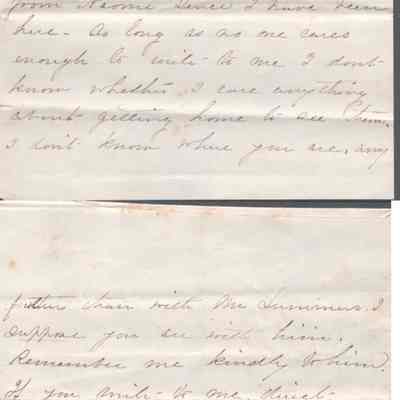 from Naomi since I have been
here - As long as no one cares
enough to write to me I don't
know whether I care anything
about getting home to see them.
I don't know where you are, any
further than with Mr Summers. I
suppose you are with him.
Remember me kindly to him.
If you write to me direct